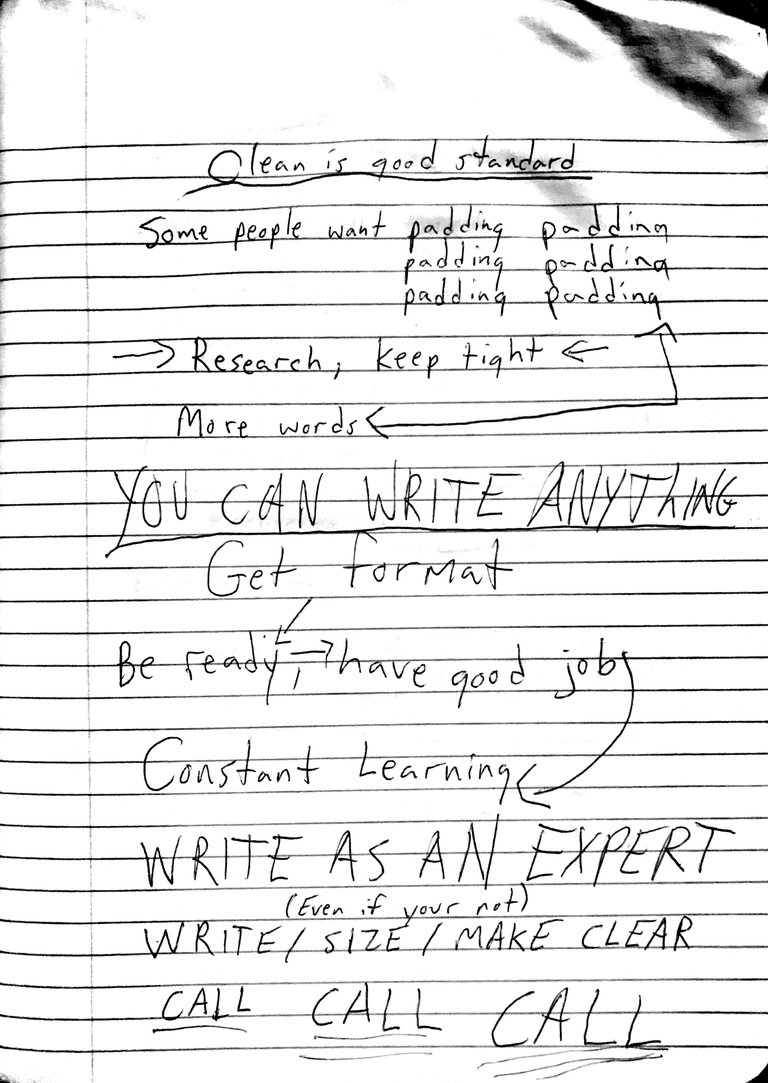 Clean is good standard
Some people want padding padding
padding padding
padding padding
→ Research, keep tight ←
More words
YOU CAN WRITE ANYTHING
Get format
Be ready, → have good job
Constant Learning
WRITE AS AN EXPERT
(Even if your not)
WRITE / SIZE / MAKE CLEAR
CALL CALL CALL